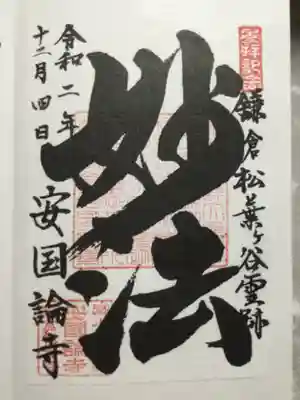 参拝記念
鎌倉松葉ヶ谷霊跡
妙法
令和二年
十二月四日
安国論寺